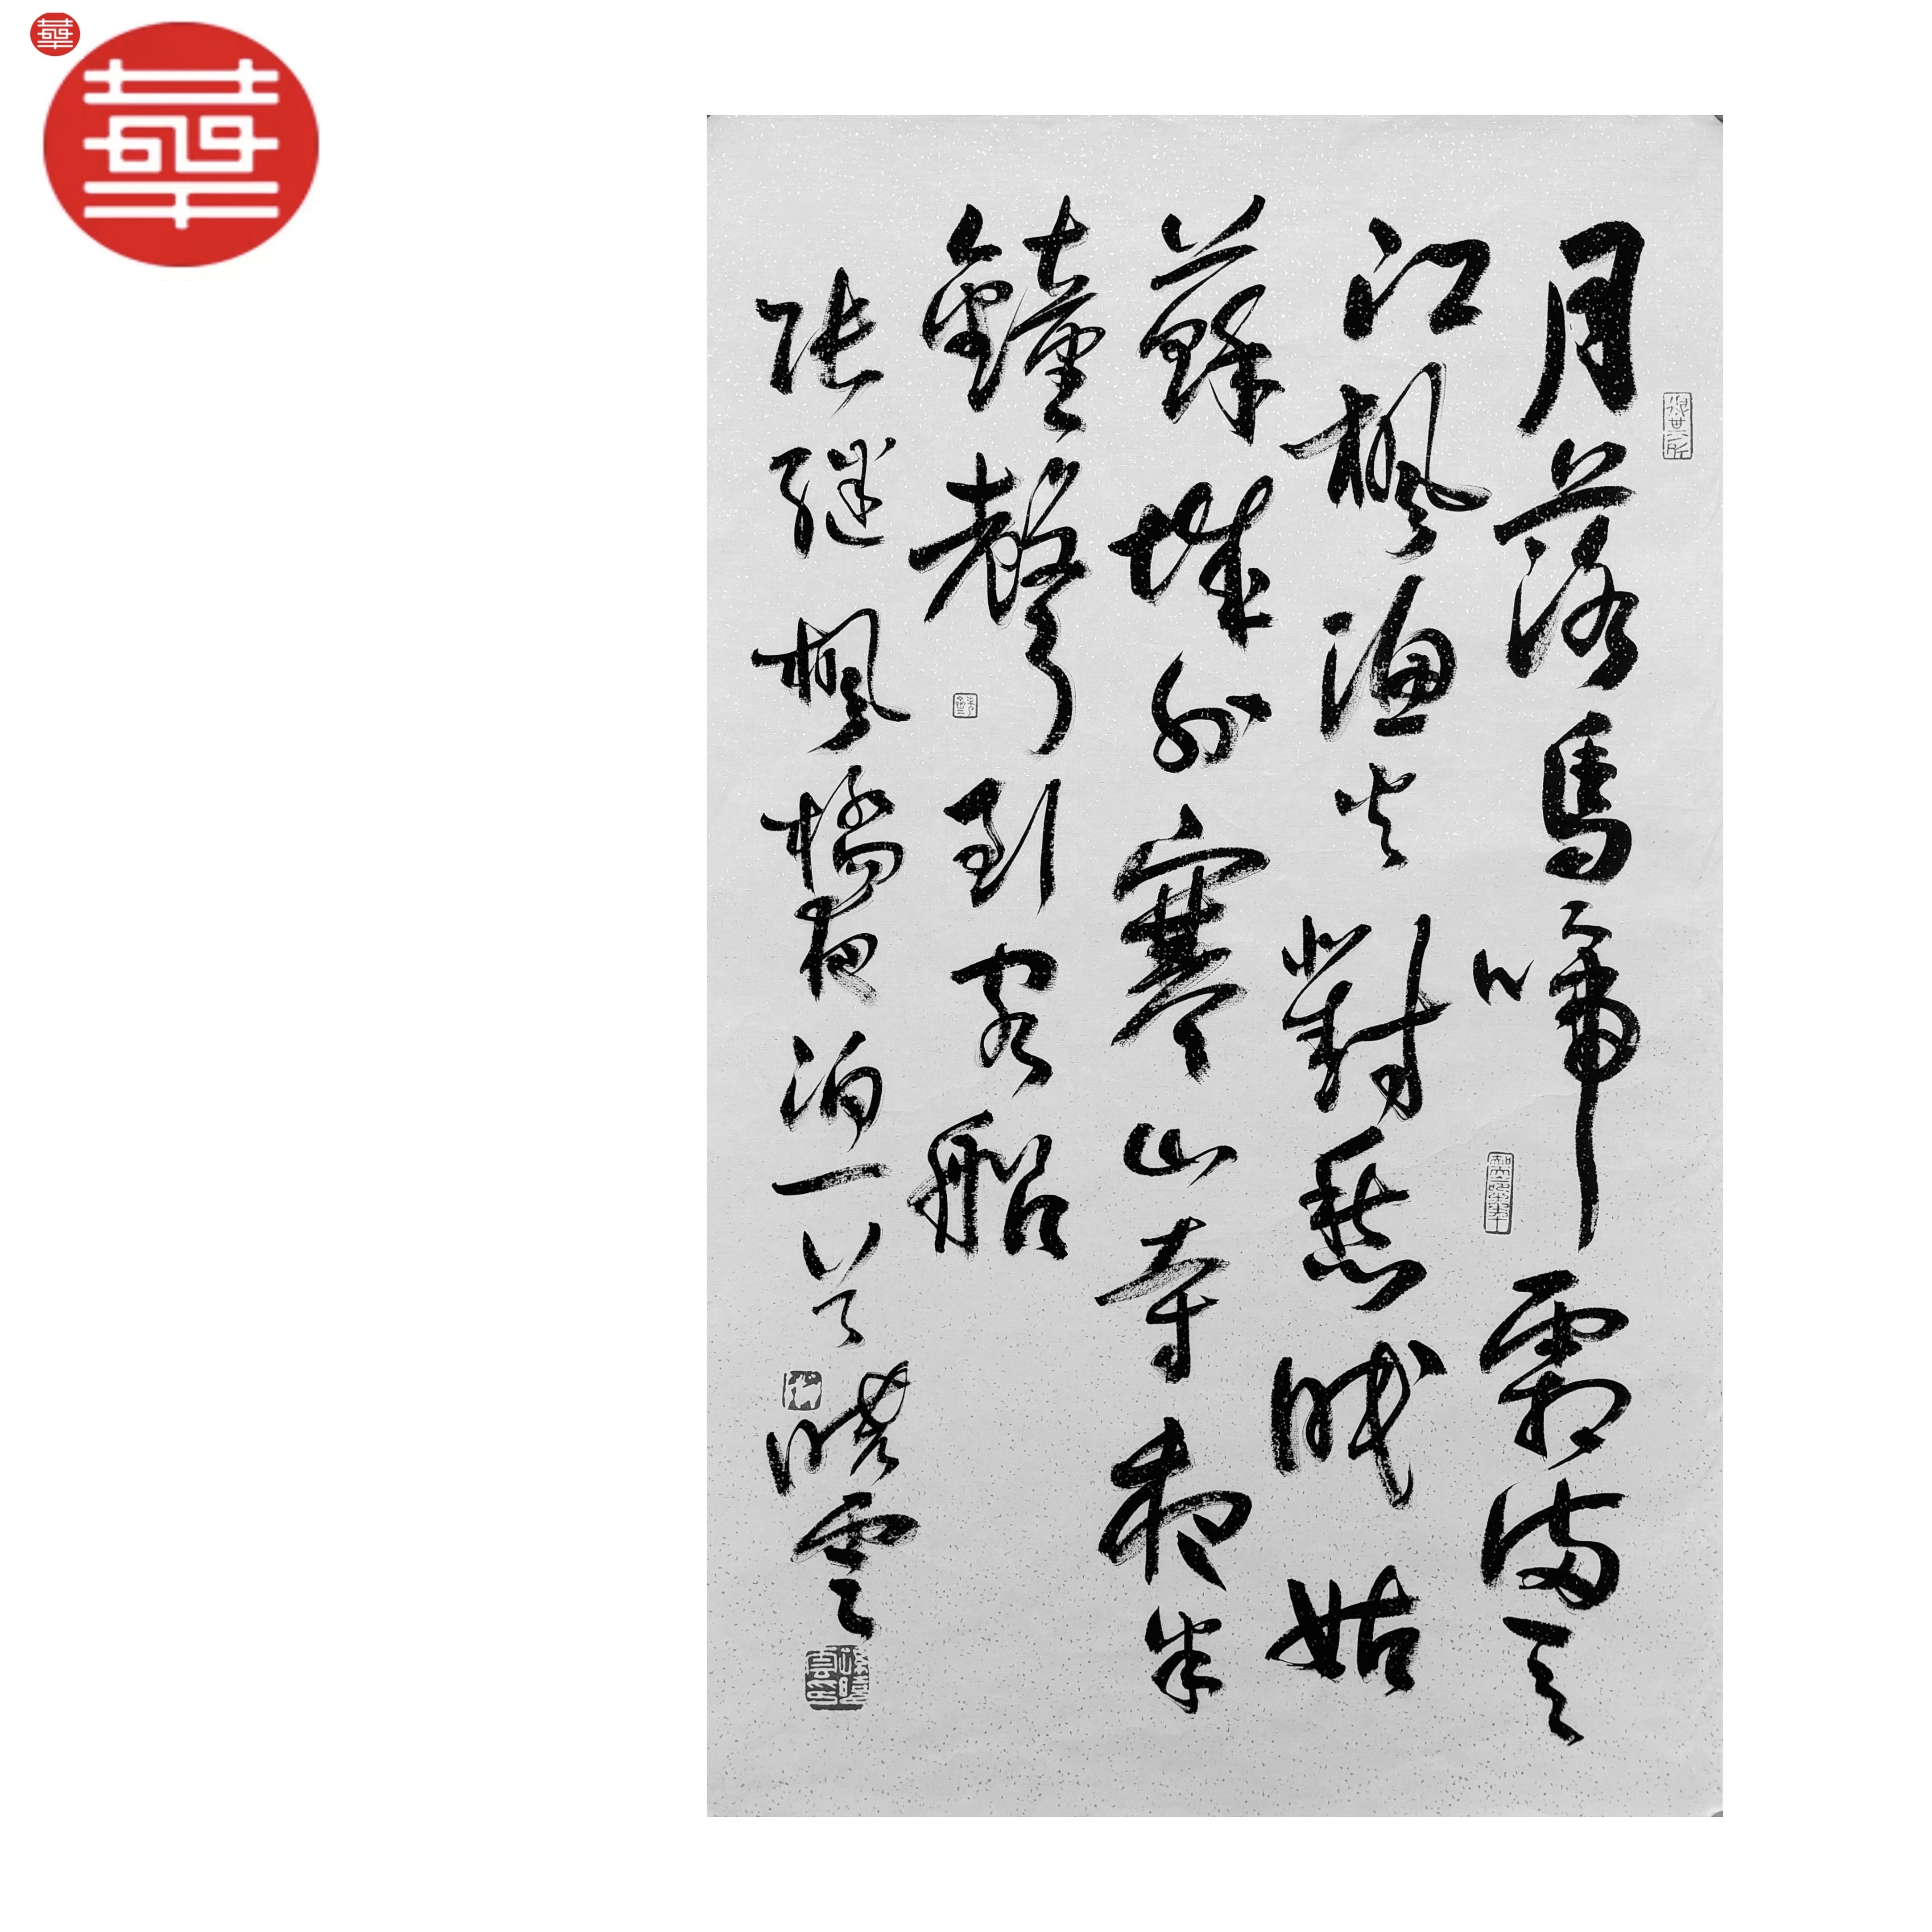 華
月落烏啼霜滿天
江楓漁火對愁眠姑
蘇城外寒山寺夜半
鐘聲到客船
張繼楓橋夜泊一首 曉雲